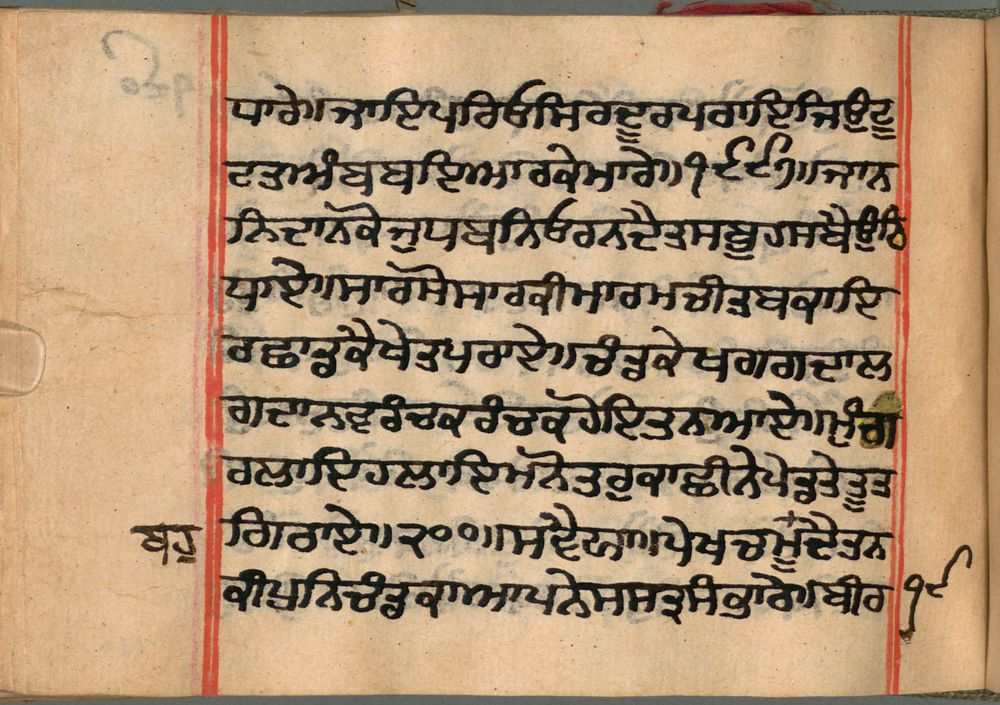 ਧਾਰੇ॥ਜਾਇਪਰਿਓਸਿਰਦੂਰਪਰਾਇਜਿਉਟੂ
ਟਤਾਅੰਬਬਇਆਰਕੇਮਾਰੇ॥੧੯੯॥ਜਾਨ
ਨਿਦਾਨਕੋਜੁਧਬਨਿਓਰਨਦੈਤਸਬੂਹਸਬੈਉਠਿ
ਧਾਏ॥ਸਾਰਸੋਸਾਰਕੀਮਾਰਮਚੀਤਬਕਾਇ
ਰਛਾਡਕੈਖੇਤਪਰਾਏ॥ਚੰਡਕੇਖਗਗਦਾਲ
ਗਦਾਨਵਰੰਚਕਰੰਚਕਹੋਇਤਨਆਏ॥ਮੂੰਗ
ਰਲਾਇਹਲਾਇਮਨੋਤਰੁਕਾਛੀਨੇਪੇਡਤੇਤੂਤ
ਗਿਰਾਏ॥੨੦੦॥ਸਵੈਯਾ॥ਪੇਖਚਮੂੰਦੈਤਨ
ਬਹੁ
ਕੀਪੁਨਿਚੰਡਕਾਆਪਨੇਸਸਤ੍ਰਸੰਭਾਰੇ॥ਬੀਰ
੧੯